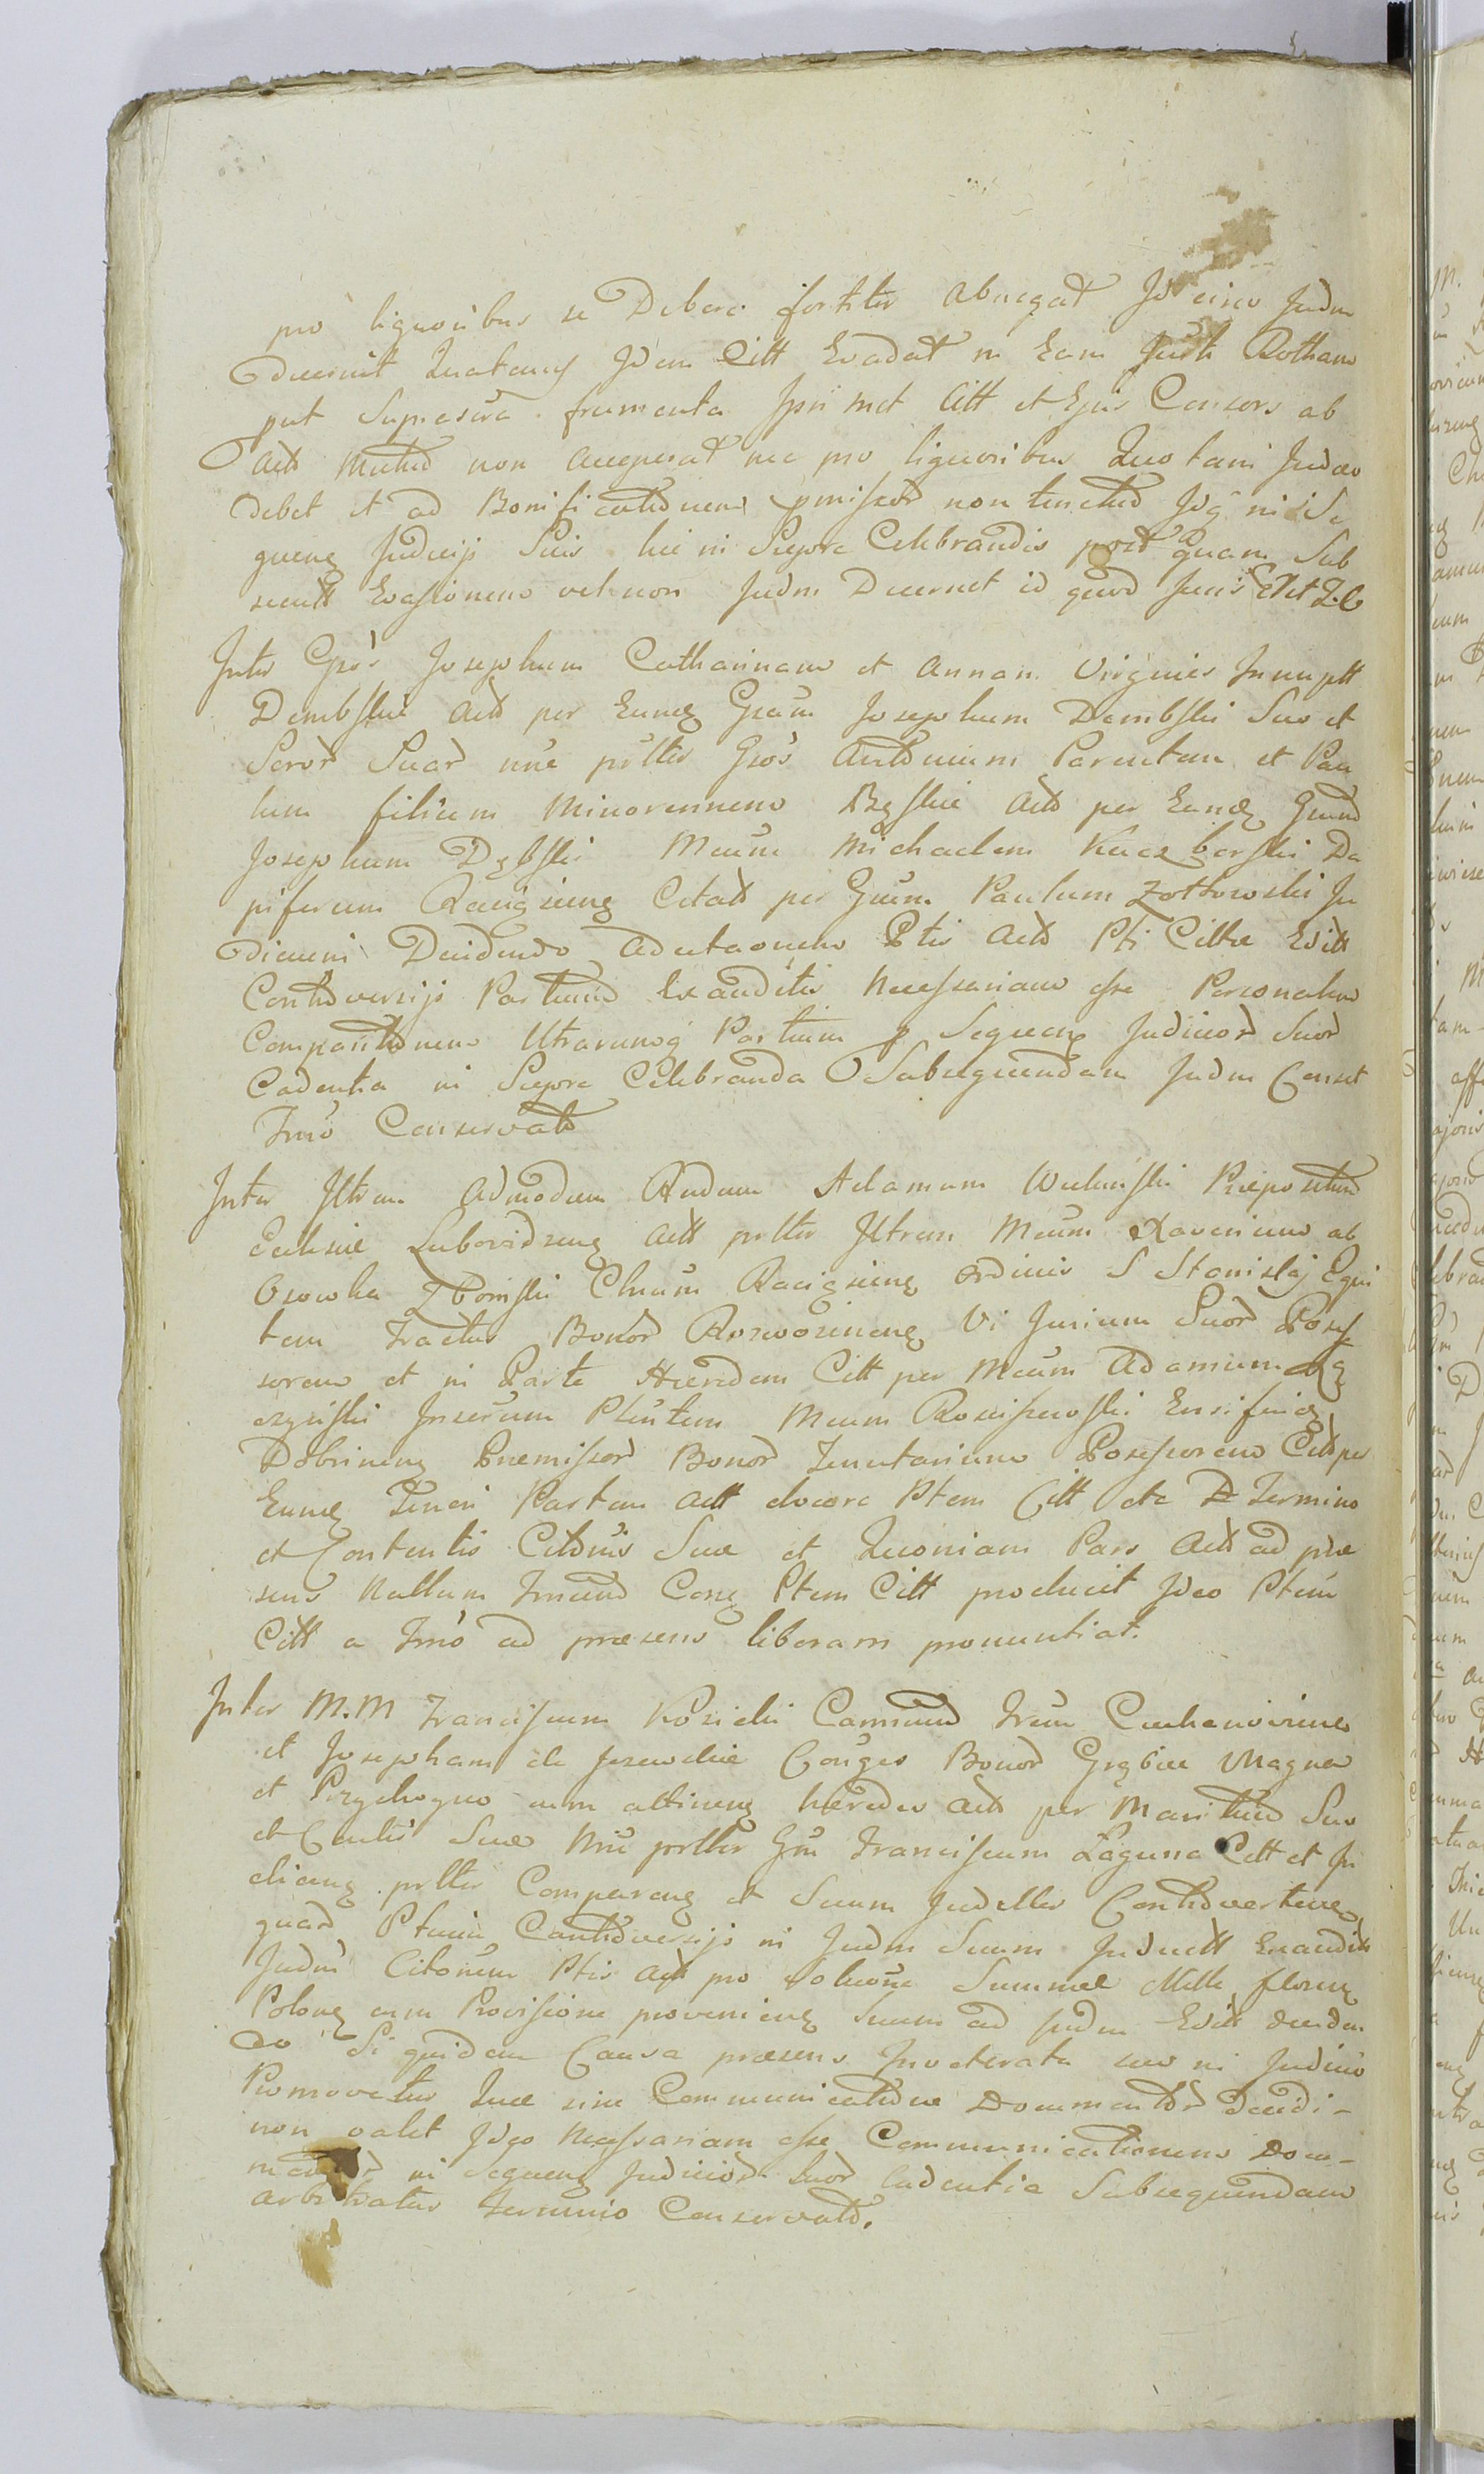 pro liquoribus se Debere fortiter abnegat Id circo Judm
decernit Quatenus Idem Citt Evadat in Eam Juxti Rotham
put Suprascra frumenta Ipse met Citt et Ejus Consors ab
act mutuo non acceperat nec pro liquoribus Quotam Judaeo
debet et ad Bonificationem pmissor non tenetur Idq in Se
quenq Judicijs Suis hic in Sierpc Celebrandis post quam Sub
secutt Evasionem vel non Judm Decernet id quod Juris
Inter Gsos Josephum Catharinam et Annam Virgines Innuptt
Dembskie Actt per Eunq Gsum Josephum Dembski Suo et
Soror Suar nne prtter Gsos Antonium Parentem et Pau
lum filium Minorennem Actt per Eunq
Josephum Dębski Mcum Michaelem Kuczborski Da
piferum Raciążienq Citatt per Gsum Paulum Zottowski Ju
dicium Decidendo Adcitaonem Ptis Actt Pti Cittae Editt
Controversijs Partium Exauditis Necessariam esse Personalem
Comparitionem Utrarumq Partium p Sequenq Judicior Suor
Cadentia in Sierpc Celebranda Subsequendam Judm Censet
Trno Conservato
Inter Iltrem Admodum Rndum Adamum Praepositum
Ecclesiae Lubovidzenq Actt prtter Iltrem Mcum Xaverium ab
Osowka Zboinski Cluum Raciążienq Ordinis S Stanislaj Equi
tem Tractus Bonor Rozwozinenq Vi Jurium Suor Posses
sorem et in Parte Haeredem Citt per Mcum Adamum
czynski Mcum Rosciszewski Ensiferum
Dobrinenq Praemissor Bonor Tenutarium Possessorem Citt per
Eunq Teneri Partem Actt docere Ptem Citt etc De Termino
et Contentis Citonis Suae et Quoniam Pars Actt ad prae
sens Nullum Trnum Conq Ptem Citt producit Ideo Ptem
Citt a Trno ad praesens liberam pronuntiat.
Inter M.M Franciscum Kozicki Camrum Trrum Ciechanoviens
et Josepham de Conges Bonor Magna
et Przychogno cum attinenq haeredes Actt per Maritum Suo
et Contis Suae Nne prtter Gsm Franciscum Łaguna Citt et Ju
dicienq prtter Comparenq et Suum Judtter Controvertenq
quar Ptium Controversijs in Judm Suum Inductt Exauditt
Judm Citonem Ptis Actt pro Solucone Summae Mille floren
Polonq cum Provisione provenienq Suum ad Judm Editt deciden
do Si quidem Causa praesens Inveterata seu in Judicio
Promovetur Quae sine Communicatione Documentor decidi-
non valet Ideo Necessariam esse Communicationem Docu-
mentor in Sequenq Judicior Suor Cadentia Subsequendam
arbitratur termino Conservato.